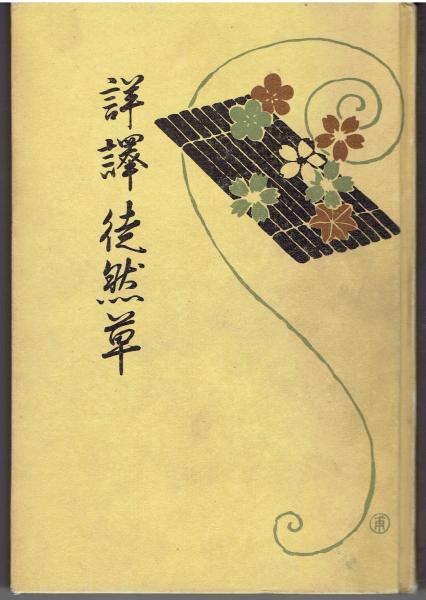 詳譯徒然草